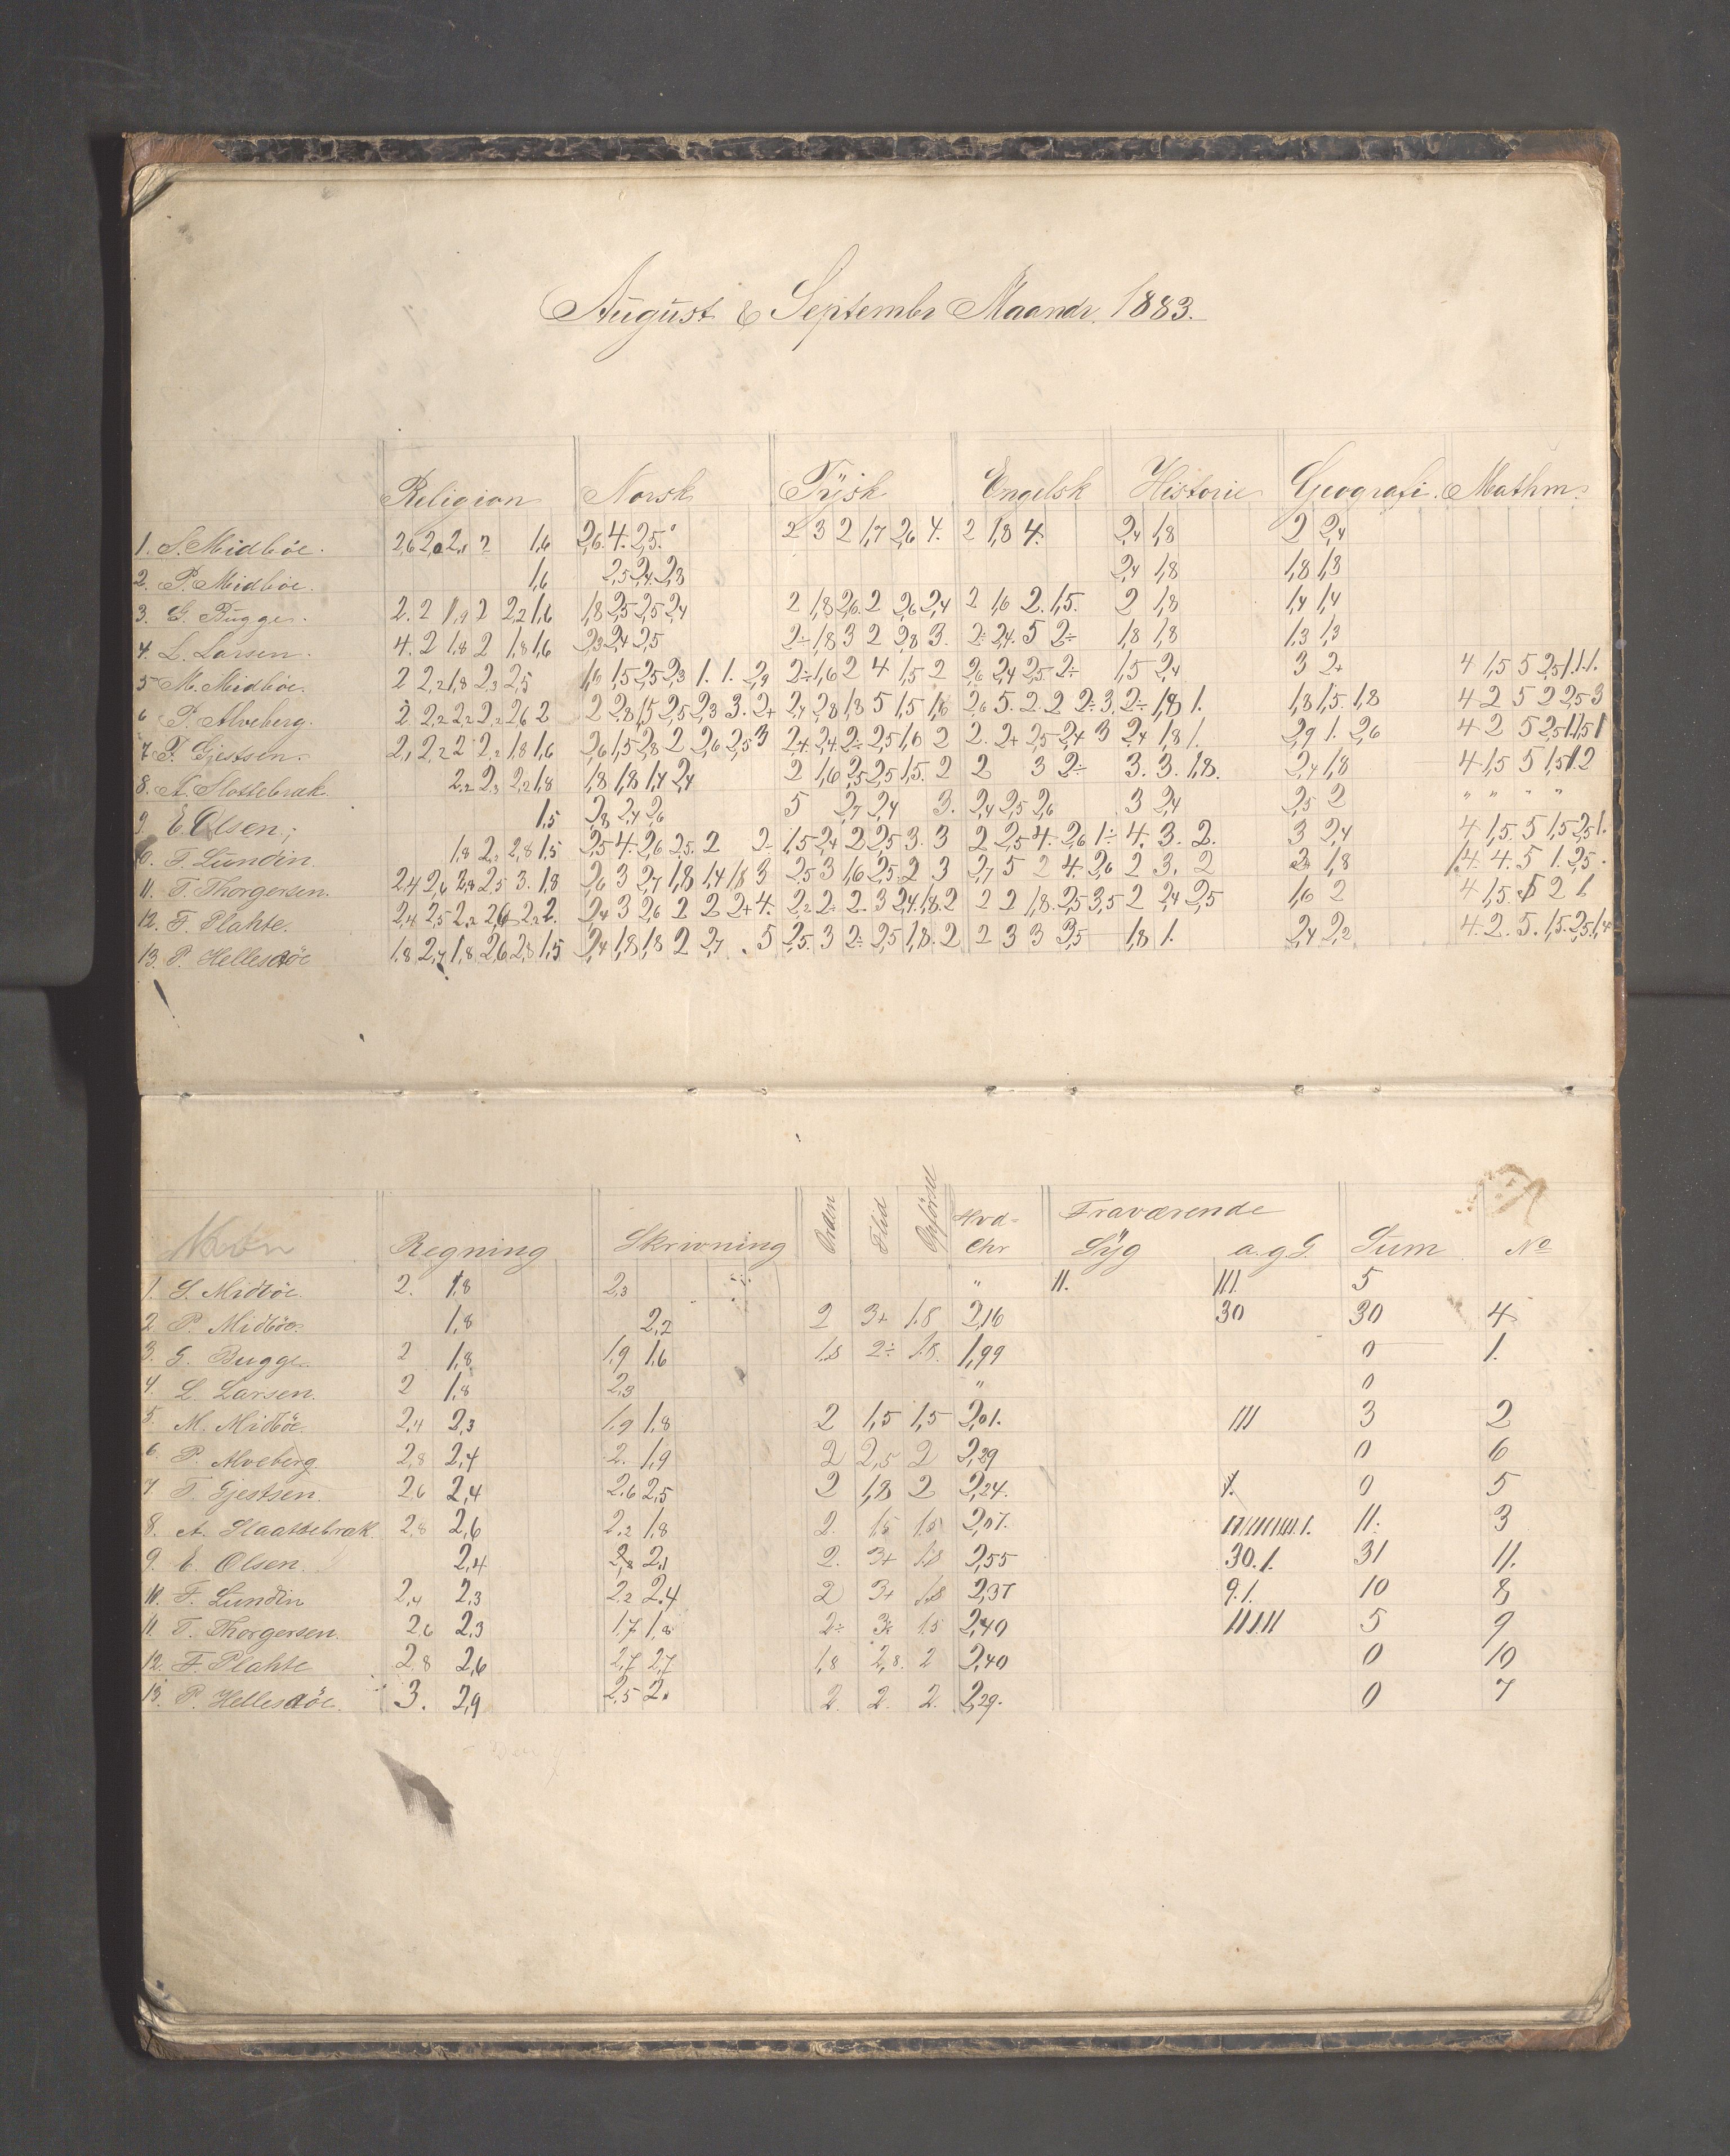 August & Septembr Maandr. 1883.
Religion Norsk Tÿsk Engelsk Historie Geografi. Mathm.
1. S. Midböe. 2,6 2,0 2,1 2 1,6 2,6. 4. 2,5. 2 3 2 1,7 2,6 4. 2 1,8 4. 2,4 1,8 2 2,4
2. P. Midböe. 1,6 2,5 2,4. 2,3 2,4 1,8 1,8 1,3
3. G. Bugge. 2. 2 1,9 2 2,2 1,6 1,8 2,5 2,5 2,4 2 1,8 2,6. 2 2,6 2,4 2 1,6 2. 1,5. 2 1,8 1,4 1,4
4. L. Larsen. 4. 2 1,8 2 1,8 1,6 2,3 2,4 2,5 2÷ 1,8 3 2 2,8 3. 2÷ 2,4. 5 2÷ 1,8 1,8 1,3 1,3
5 M. Midböe. 2 2,2 1,8 2,3 2,5 1,6 1,5 2,5 2,3 1. 1. 2,9 2÷ 1,6 2 4 1,5 2 2,6 2,4 2,5 2÷ 1,5 2,4 3 2+ 4 1,5 5 2,5 1. 1. 1.
6 P. Alveberg. 2. 2,2 2,2 2,2 2,6 2 2 2,8 1,5 2,5 2,3 3. 2+ 2,4 2,8 1,8 5 1,5 1,6 2,6 5. 2. 2 2÷ 3. 2÷ 1,8 1. 1,8 1,5. 1,8 4 2 5 2 2,5 3
7. T. Gjestsen. 2,1 2,2 2 2,2 1,8 1,6 2,6 1,5 2,8 2 2,6 2,5 3 2,4. 2,4. 2÷ 2,5 1,6 2 2. 2+ 2,5 2,4 3 2,4 1,8 1. 2,9 1. 2,6 4 2 5 2,5 1. 1,5 1
8. A. Slottebrak. 2,2 2,3 2,2 1,8 1,8 1,8 1,4 2,4 2 1,6 2,5 2,5 1,5. 2 2 3 2÷ 3. 3. 1,8. 2,4 1,8 4 1,5 5 1,5 1. 2
9. E. Olsen; 1,5 2,8 2,4 2,6 5 2,7 2,4 3. 2,4 2,5 2,6 3 2,4 2,5 2 " " " "
10. F. Lundin. 1,8 2,2 2,8 1,5 2,5 4. 2,6 2,5. 2 2÷ 1,5 2,4 2 2,5 3. 3 2 2,5 4. 2,6 1÷ 4. 3. 2. 3 2,4 4 1,5. 5 1,5 2,5 1.
11. T. Thorgersen. 2,4 2,6 2,8 2,5 3. 1,8 2,6 3 2,7 1,8 1,4 1,8 3 2,5 3 1,6 2,5÷ 2 3 2,7 5 2 4. 2,6 2 3. 2 2+ 1,8 4. 4. 5 1. 2,5.
12. F. Plahte. 2,4 2,5 2,2 2,6 2,2 2. 2,4 3 2,6 2 2 2+ 4. 2,2 2÷ 2÷ 3 2,4 1,8. 2 2 2 1,8. 2,5 3,5 2 2,4 2,5 1,6 2 4 1,5. 5 2 1
13. P. Hellesdöe 1,8 2,4 1,8 2,6 2,8 1,5 2,4 1,8 1,8 2 2,7 . 5 2,5. 3 2÷ 2,5 1,8. 2 2 3 3 3,5 1,8 1. 2,4 2,2 4. 2. 5. 1,5. 2,5. 1,4
Navn Regning Skrivning Orden Flid Opförsel Hvd-Chr Fraværende Sÿg a.g.G. Sum No
1. S. Midböe. 2. 1,8 2,3 " 11. 111 5
2 P. Midböe. 1,8 2,2 2 3+ 1.8 2,16 30 30 4
3. G. Bugge 2 1,8 1,9 1,6 1,8 2÷ 1,8. 1,99 0 1.
4. L. Larsen. 2 1,8 2,3 " 0
5. M. Midböe 2,4 2,3 1,9 1,8 2 1,5 1,5 2,01. 111 3 2
6. P. Alveberg 2,8 2,4 2. 1,9 2 2,5 2 2,29 0 6
7 T. Gjestsen. 2,6 2,4 2,6 2,5 2 1,8 2 2,24. 0 5
8. A. Slaattebrak 2,8 2,6 2,2 1,8 2. 1,5 1,5 2,07. 11: 3
9. E. Olsen. 2,4 2,8 2,1 2. 3+ 1.8 2,55 30.1. 31 11.
10. F. Lundin 2,4 2,3 2,2 2,4 2 3+ 1,8 2,37 9.1. 10 8
11. T. Thorgersen. 2,6 2,3 1,7 1,8 2÷ 3+ 1,5 2,40 11111 5 9
12. F. Plahte 2,8 2,6 2,7 2,7 1,8 2,8. 2 2,40 0 10
13. P. Hellesdöe. 3. 2,9 2,5 2. 2. 2. 2. 2,29. 0 7